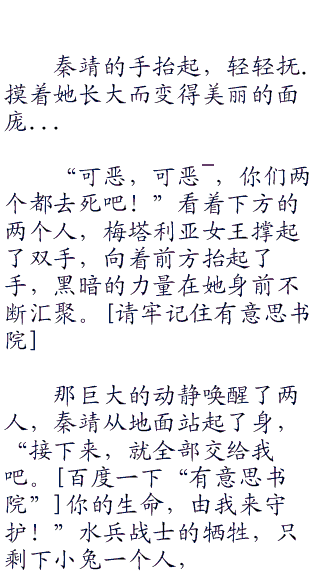 秦靖的手抬起，轻轻抚.
摸着她长大而变得美丽的面
庞...
“可恶，可恶¯，你们两
个都去死吧！”看着下方的
两个人，梅塔利亚女王撑起
了双手，向着前方抬起了
手，黑暗的力量在她身前不
断汇聚。[请牢记住有意思书
院]
那巨大的动静唤醒了两
人，秦靖从地面站起了身，
“接下来，就全部交给我
吧。[百度一下“有意思书
院”]你的生命，由我来守
护！”水兵战士的牺牲，只
剩下小兔一个人，